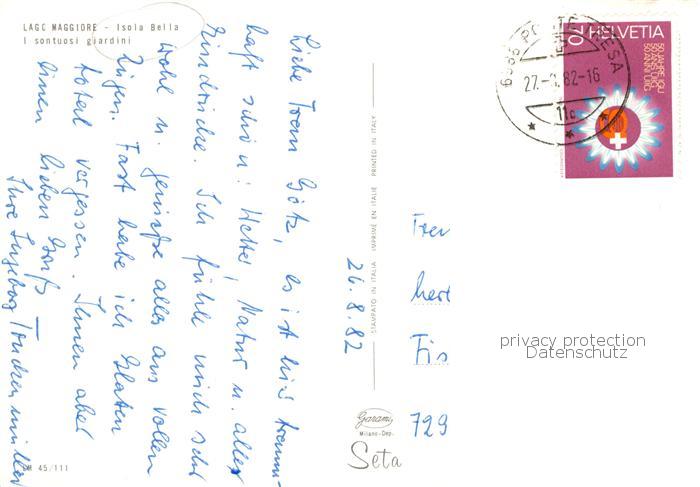 LAGO MAGGIORE - Isola Bella
I sontuosi giardini
Liebe Frau Götz, es ist hier traum-
haft schön! Wetter, Natur u. alles
Eindrücke. Ich fühle mich sehr
wohl u. genieße alles aus vollen
Zügen. Fast habe ich
total vergessen. Ihnen aber
einen lieben Gruß
Ihre Ingeborg
26.8.82
STAMPATO IN ITALIA IMPRIMÉ EN ITALIE PRINTED IN ITALY
6988 PONTE TRESA
27.-8.82-16
11c
HELVETIA
50 JAHRE IGU
50 ANS L'UIIG
50 ANNI UTIG
Frau
herr
Fis
729
privacy protection
Datenschutz
Garami
Milano-Dep.
Seta
45/111